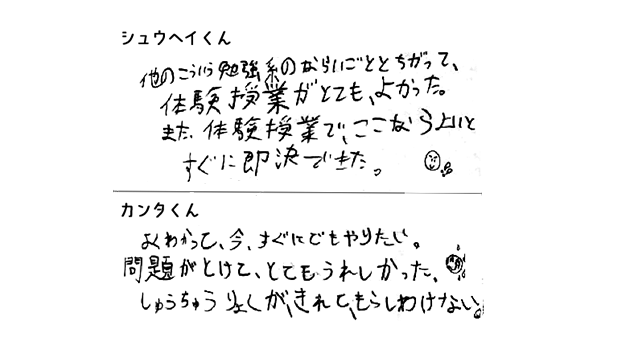 シュウヘイくん
他のこういう勉強系のならいごととちがって、
体験授業がとても、よかった。
また、体験授業で、ここなら上いと
すぐに即決できた。
カンタくん
よくわかって、今、すぐにでもやりたい。
問題がとけて、とてもうれしかった、
しゅうちゅうりょくが、きれて、もうしわけない。